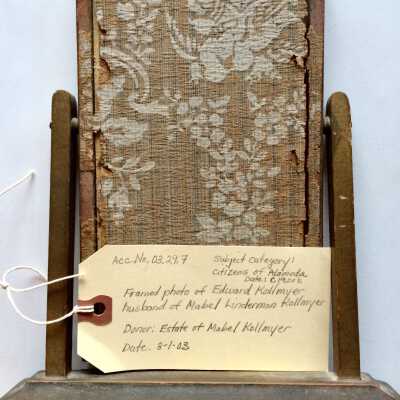 Acc. No. 03.29.7
Subject Category:
Citizens of Alameda
Date: c
Framed photo of Edward Kollmyer
husband of Mabel Linderman Kollmyer
Donor: Estate of Mabel Kollmyer
Date: 3-1-03